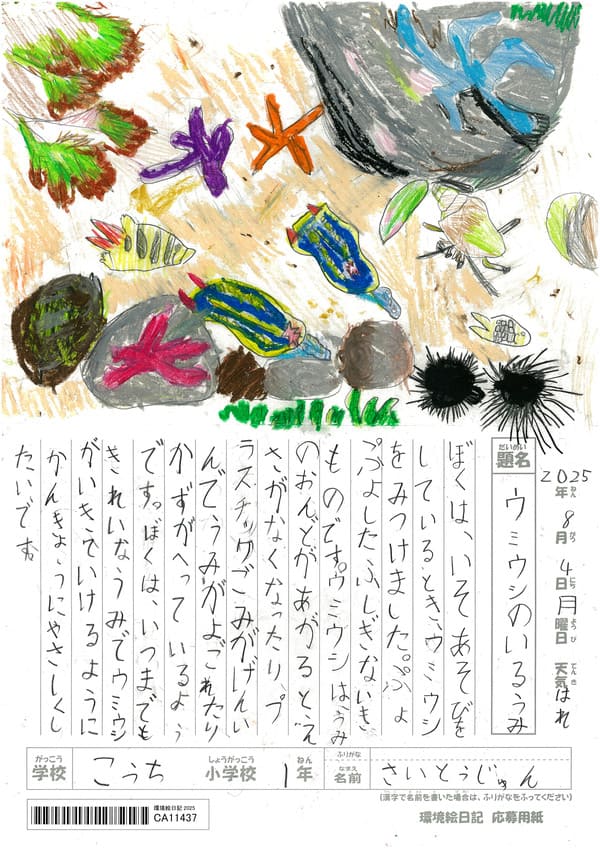 2025年8月4日月曜日 天気はれ
ねん がつ にち ようび てんき
だいめい
題名
ウミウシのいるうみ
ぼくは、いそあそびを
しているとき、ウミウシ
をみつけました。ぷよ
ぷよしたふしぎないき
ものです。ウミウシは、うみ
のおんどがあがるとえ
さがなくなったり、プ
ラスチックごみがげんい
んでうみがよごれたり
かずがへっているよう
です。ぼくは、いつまでも
きれいなうみでウミウシ
がいきていけるように
かんきょうにやさしくし
たいです。
がっこう しょうがっこう ねん ふりがな
学校 こうち 小学校 1年 なまえ 名前 さいとうじゅん
(漢字で名前を書いた場合は、ふりがなをふってください)
環境絵日記 2025
CA11437
環境絵日記 応募用紙